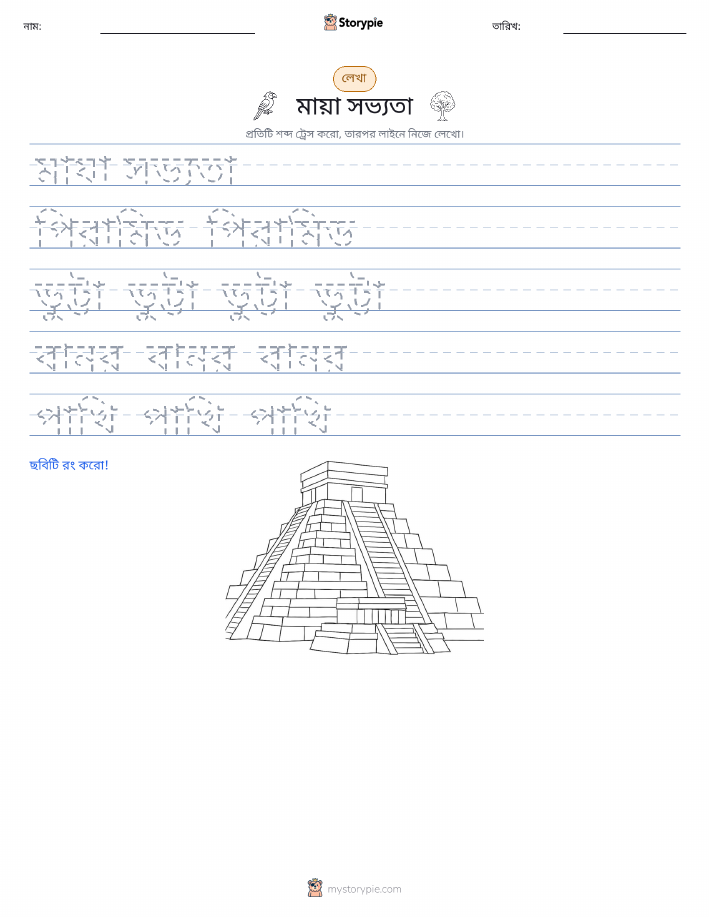 নাম: Storypie তারিখ:
লেখা
মায়া সভ্যতা
প্রতিটি শব্দ ট্রেস করো, তারপর লাইনে নিজে লেখো।
মায়া সভ্যতা
পিরামিড পিরামিড
ভুট্টা ভুট্টা ভুট্টা ভুট্টা
বানর বানর বানর
পাখি পাখি পাখি
ছবিটি রং করো!
mystorypie.com